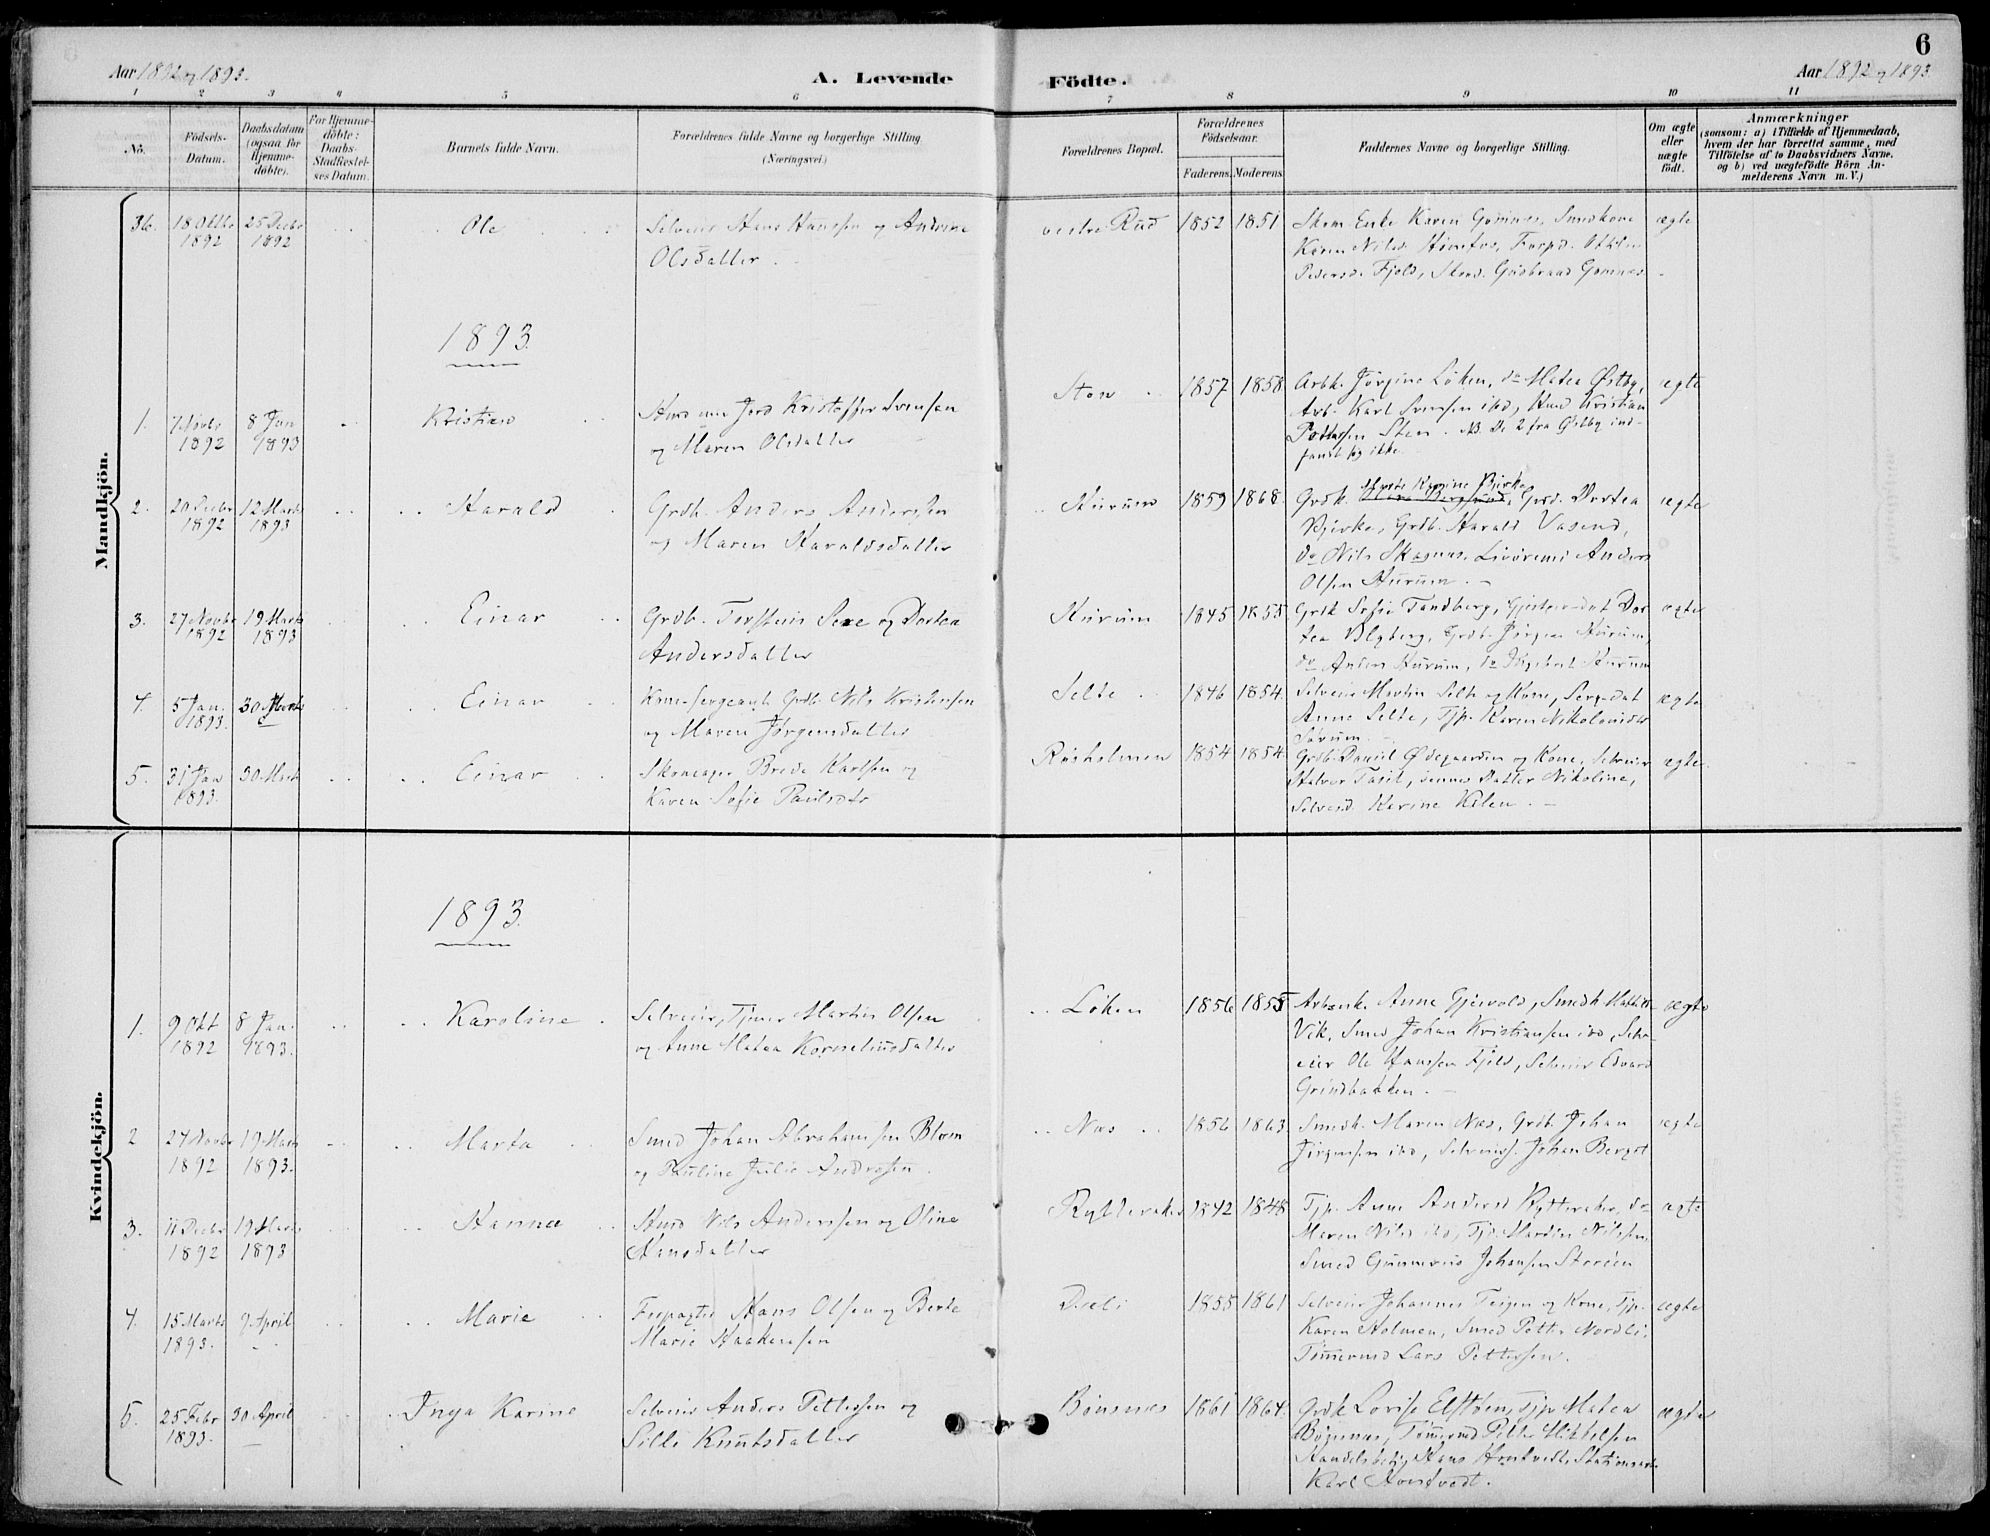 6
Aar 1892 og 1893.
A. Levende Födte.
Aar 1892 og 1893
1 2 3 4 5 6 7 8 9 10 11
No.
Födsels-
Datum.
Daabsdatum
(ogsaa for
Hjemme-
döbte).
For Hjemme-
döbte:
Daabs-
Stadfæstel-
ses Datum.
Barnets fulde Navn.
Forældrenes fulde Navne og borgerlige Stilling.
(Næringsvei.)
Forældrenes Bopæl.
Forældrenes
Födselsaar.
Faderens. Moderens.
Faddernes Navne og borgerlige Stilling.
Om ægte
eller
uægte
födt.
Anmærkninger
(saasom: a) i Tilfælde af Hjemmedaab,
hvem der har forrettet samme, med
Tilföielse af to Daabsvidners Navne,
og b) ved uægtefödte Börn An-
melderens Navn m. V.)
Mandkjön.
36. 18 Oktbr 1892 25 Decbr 1892 Ole
Selveier Hans Hanssen og Andrine
Olsdatter.
vestre Rud 1852 1851
Enke Karen Gomnes, Smedkone
Karen Nilsd. Hønefos,
Pedersd. Fjeld, Gudbrand Gomnes
ægte
1893.
1. 7 Novbr 1892 8 Jan 1893 Kristian
Husmd uden Jord Kristoffer Svensen
og Maren Olsdatter
Sten 1857 1858
Arbk. Jørgine Løken, do Matea Østby,
Arb. Karl Svensen ibd, Husmd Kristian
Pettersen Sten. NB. De 2 fra Østby ind-
fandt sig ikke.
ægte
2. 20 Decbr 1892 12 Marts 1893 Harald
Grdb. Anders Andersen
og Maren Haraldsdatter
Hurum 1859 1868
Marte Karine Bjerke
Grdk. Grdd. Dortea
Bjerke, Grdb. Harald Vasend,
do Nils Skagnes, Anders
Olsen Hurum.
ægte
3. 27 Novbr 1892 19 Marts 1893 Einar
Grdb. Torstein og Dortea
Andersdatter
Hurum 1845 1855
Grdk Sofie Tandberg, Dor-
tea Blyberg, Grdb. Jørgen Hurum,
do Anders Hurum, do Hurum
ægte
4. 5 Jan. 1893. 30 Marts Einar
Sergeant Grdb. Nils Kristensen
og Maren Jørgensdatter
Selte 1846 1854
Selveier Martin Selte og Kone,
Anne Selte, Tjp. Karen Nikolaisdtr
Sørum.
ægte
5. 31 Jan 1893. 30 Marts Einar
Skomager Brede Karlsen og
Karen Sofie Paulsdtr
Risholmen 1854 1854
Grdb. Daniel Ødegaarden og Kone, Selveier
Halvor dennes Datter Nikoline,
Karine Kilen.
ægte
Kvindekjön.
1893.
1. 9 Okt 1892 8 Jan. 1893. Karoline
Selveier, Martin Olsen
og Anne Matea Korneliusdatter
Løken 1856 1855
Anne Gjesvold, Smedk
Vik, Smed Johan Kristiansen ibd, Selv-
eier Ole Hanssen Fjeld, Selveier Edvard
Grindbakken.
ægte
2 27 Novbr 1892 19 Marts 1893. Marta
Smed Johan Abrahamsen Blom
og Pauline Julie Andersen.
Næs 1856 1863
Smedk. Maren Næs, Grdb. Johan
Jørgensen ibd, Johan Berget
ægte
3. 11 Decbr 1892 19 Marts 1893 Hanna
Husmd Nils Anderssen og Oline
Hansdatter
Rytteraker 1842 1848
Tjp. Anne Andersd Rytteraker, do
Maren Nilsd ibd, Martin Nilssen,
Smed Gunnerius Johansen Storøen
ægte
4. 15 Marts 1893. 9 April Marie
Forpagter Hans Olsen og Berte
Marie Haakensen
Dæli 1855 1861
Selveier Johannes Teigen og Kone, Tjp.
Karen Holmen, Smed Petter Nordli,
Tømmermd Lars Pettersen.
ægte
5. 25 Febr 1893. 30 April Inga Karine
Selveier Anders Pettersen og
Sille Knutsdatter
Bønsnæs 1861 1864
Grdk Lovise Elstøen, Tjp Matea
Bønsnæs, Tømmermd Petter Mikkelsen
Hans
Karl Honstvedt.
ægte